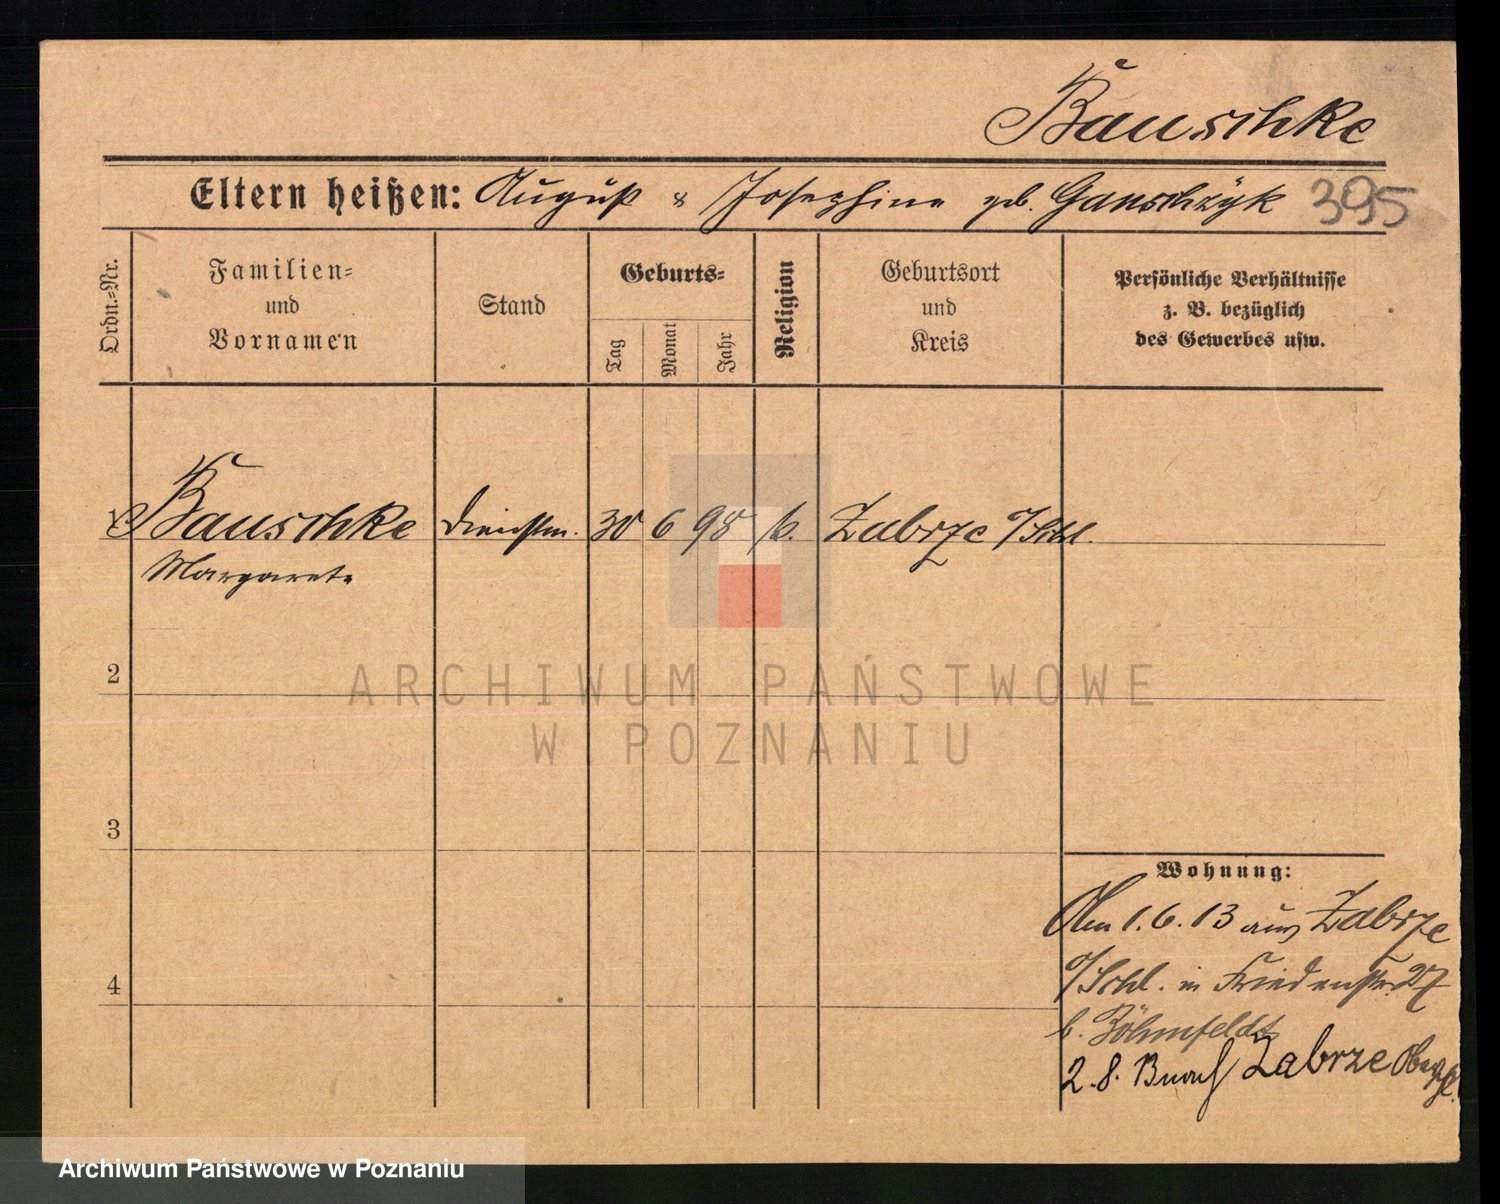 Bauschke
Eltern heißen: August & Josephine geb. Ganschzyk 395
Ordn.=Nr.
Familien=
und
Vornamen
Stand
Geburts=
Tag
Monat
Jahr
Religion
Geburtsort
und
Kreis
Persönliche Verhältnisse
z. B. bezüglich
des Gewerbes usw.
Bauschke Dienstm. 30 6 98 k. Zabrze O/Schl.
Margarete
2
ARCHIWUM PAŃSTWOWE
W POZNANIU
3
Wohnung:
Am 1.6.13 aus Zabrze
O/Schl. in Friedenstr. 27
b. Böhmfeldt
4
2.8. nach Zabrze
Archiwum Państwowe w Poznaniu